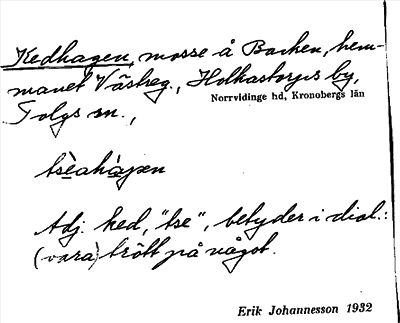 Kedhagen, mosse å Backen, hem-
manet Västreg., Holkastorps by,
Norrvidinge hd, Kronobergs län
Tolgs sn.,
Adj. ked, "tse", betyder i dial.:
(vara) trött på något.
Erik Johannesson 1932